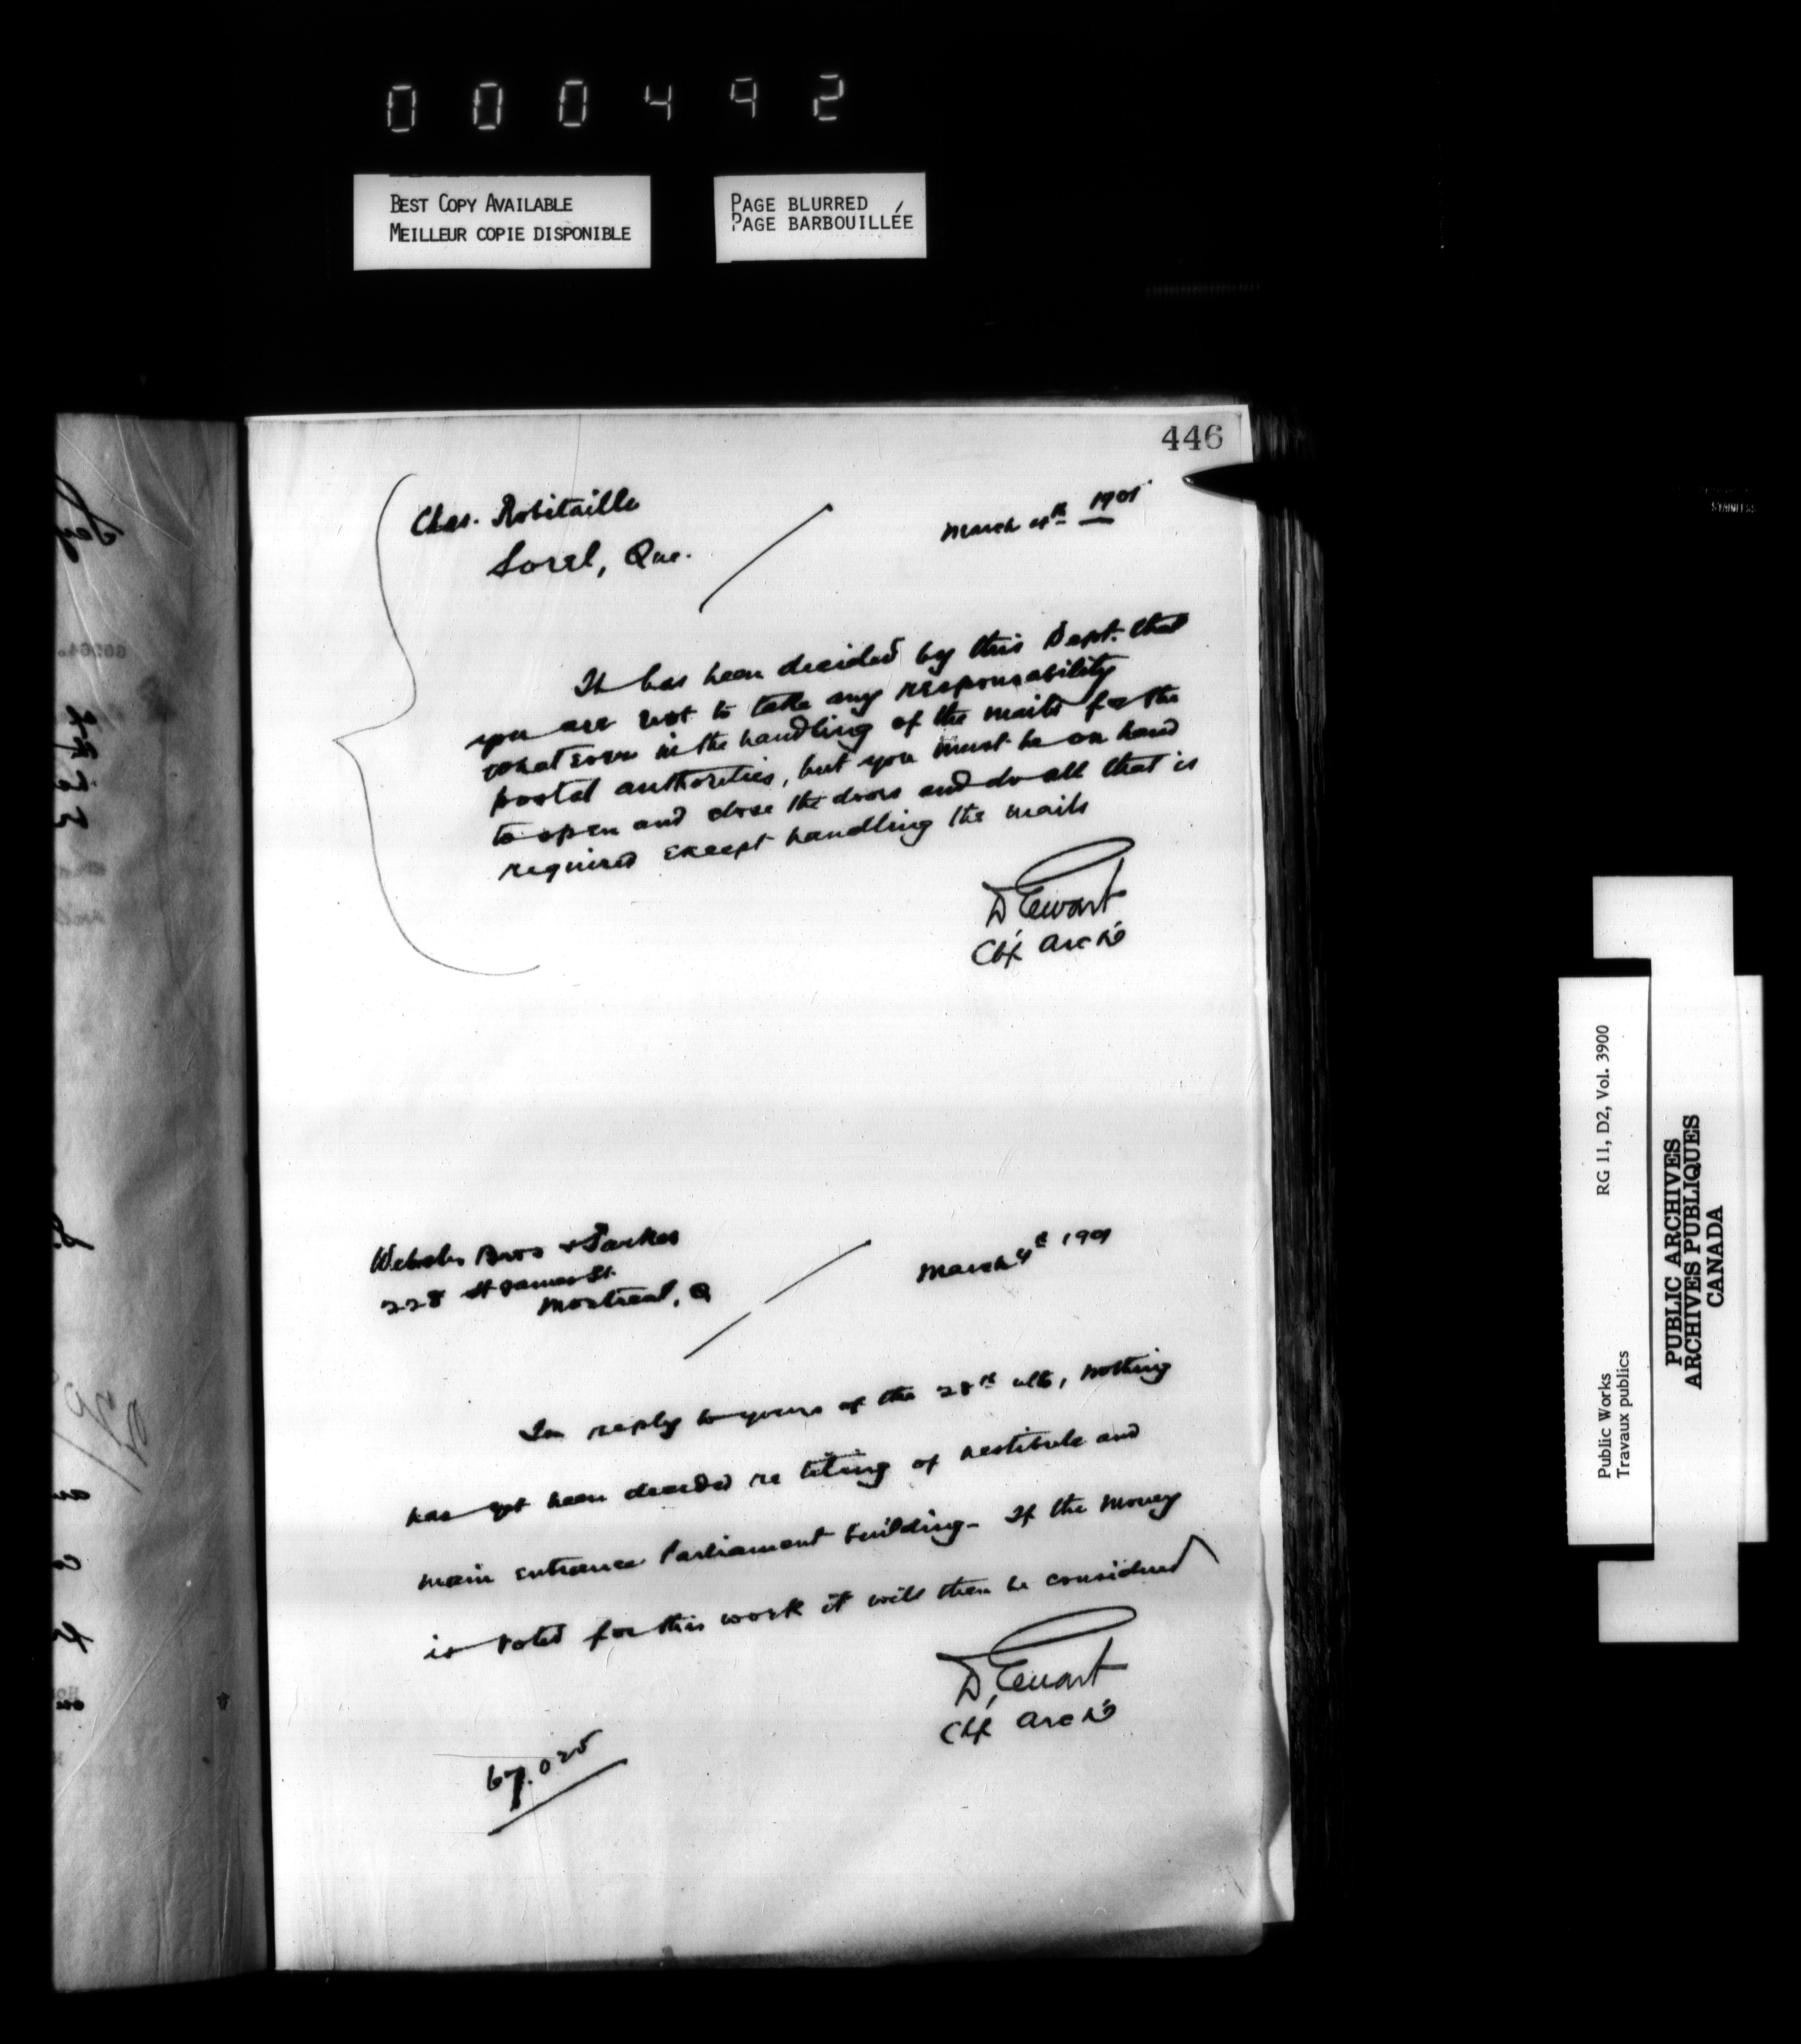 000492
BEST COPY AVAILABLE
MEILLEUR COPIE DISPONIBLE
PAGE BLURRED
PAGE BARBOUILLÉE
446
Chas. Robitaille
Sorel, Que.
March 4th 1901
It has been decided by this Dept. that
you are not to take any responsability
whatever in the handling of the mails for the
postal authorities, but you must be on hand
to open and close the doors and do all that is
required except handling the mails
D Ewart
Chf Archt
Webster Bros & Parkes
228 St James St.
Montreal, Q
March 4th 1901
In reply to yours of the 28th ulto, nothing
has yet been decided re tiling of vestibule and
main entrance Parliament building - If the money
is voted for this work it will then be considered
D, Ewart
Chf Archt
67.025
RG 11, D2, Vol. 3900
Public Works
Travaux publics
PUBLIC ARCHIVES
ARCHIVES PUBLIQUES
CANADA